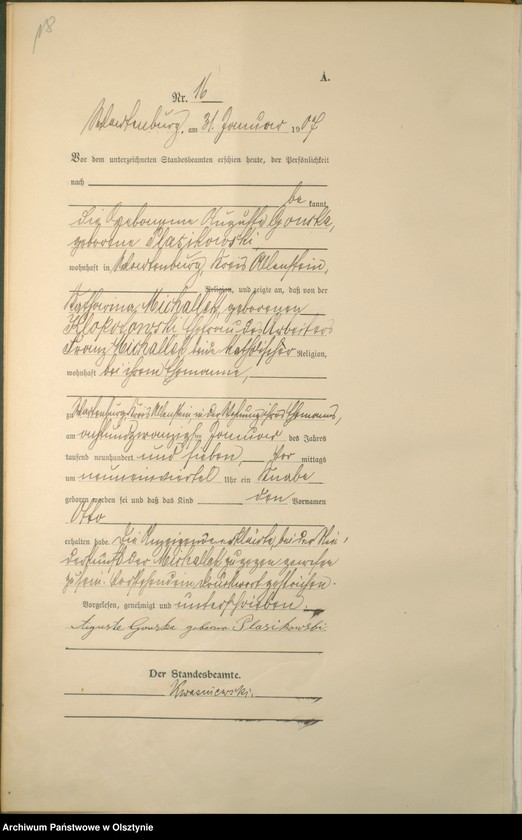 A.
Nr. 16
Wartenburg, am 31. Januar 1907
Vor dem unterzeichneten Standesbeamten erschien heute, der Persönlichkeit
nach
be kannt,
die Hebamme Auguste Gonska,
geborene Plasikowski,
wohnhaft in Wartenburg, Kreis Allenstein,
Religion, und zeigte an, daß von der
Katharina Michallek, geborenen
Klokosowski, Ehefrau des Arbeiters
Franz Michallek, beide katholischer Religion,
wohnhaft bei ihrem Ehemanne,
zu Wartenburg, Kreis Allenstein, in der Wohnung ihres Ehemanns,
am achtundzwanzigsten Januar des Jahres
tausend neunhundert und sieben, Vor mittags
um neuneinviertel Uhr ein Knabe
geboren worden sei und daß das Kind den Vornamen
Otto
erhalten habe. Die Anzeigende erklärte, bei der Nie-
derkunft der Michallek zugegen gewesen
zu sein. Vorstehend ein Druckwort gestrichen.
Vorgelesen, genehmigt und unterschrieben.
Auguste Gonska geborene Plasikowski.
Der Standesbeamte.
Kwasniewski.
Archiwum Państwowe w Olsztynie